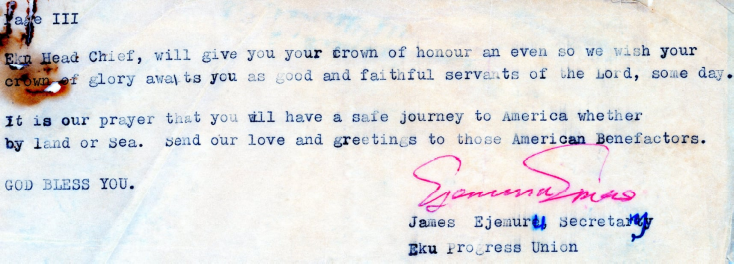 Page III
Eku Head Chief, will give you your crown of honour an even so we wish your
crown of glory awaits you as good and faithful servants of the Lord, some day.
It is our prayer that you will have a safe journey to America whether
by land or Sea. Send our love and greetings to those American Benefactors.
GOD BLESS YOU.
James Ejemuru Secretary
Eku Progress Union